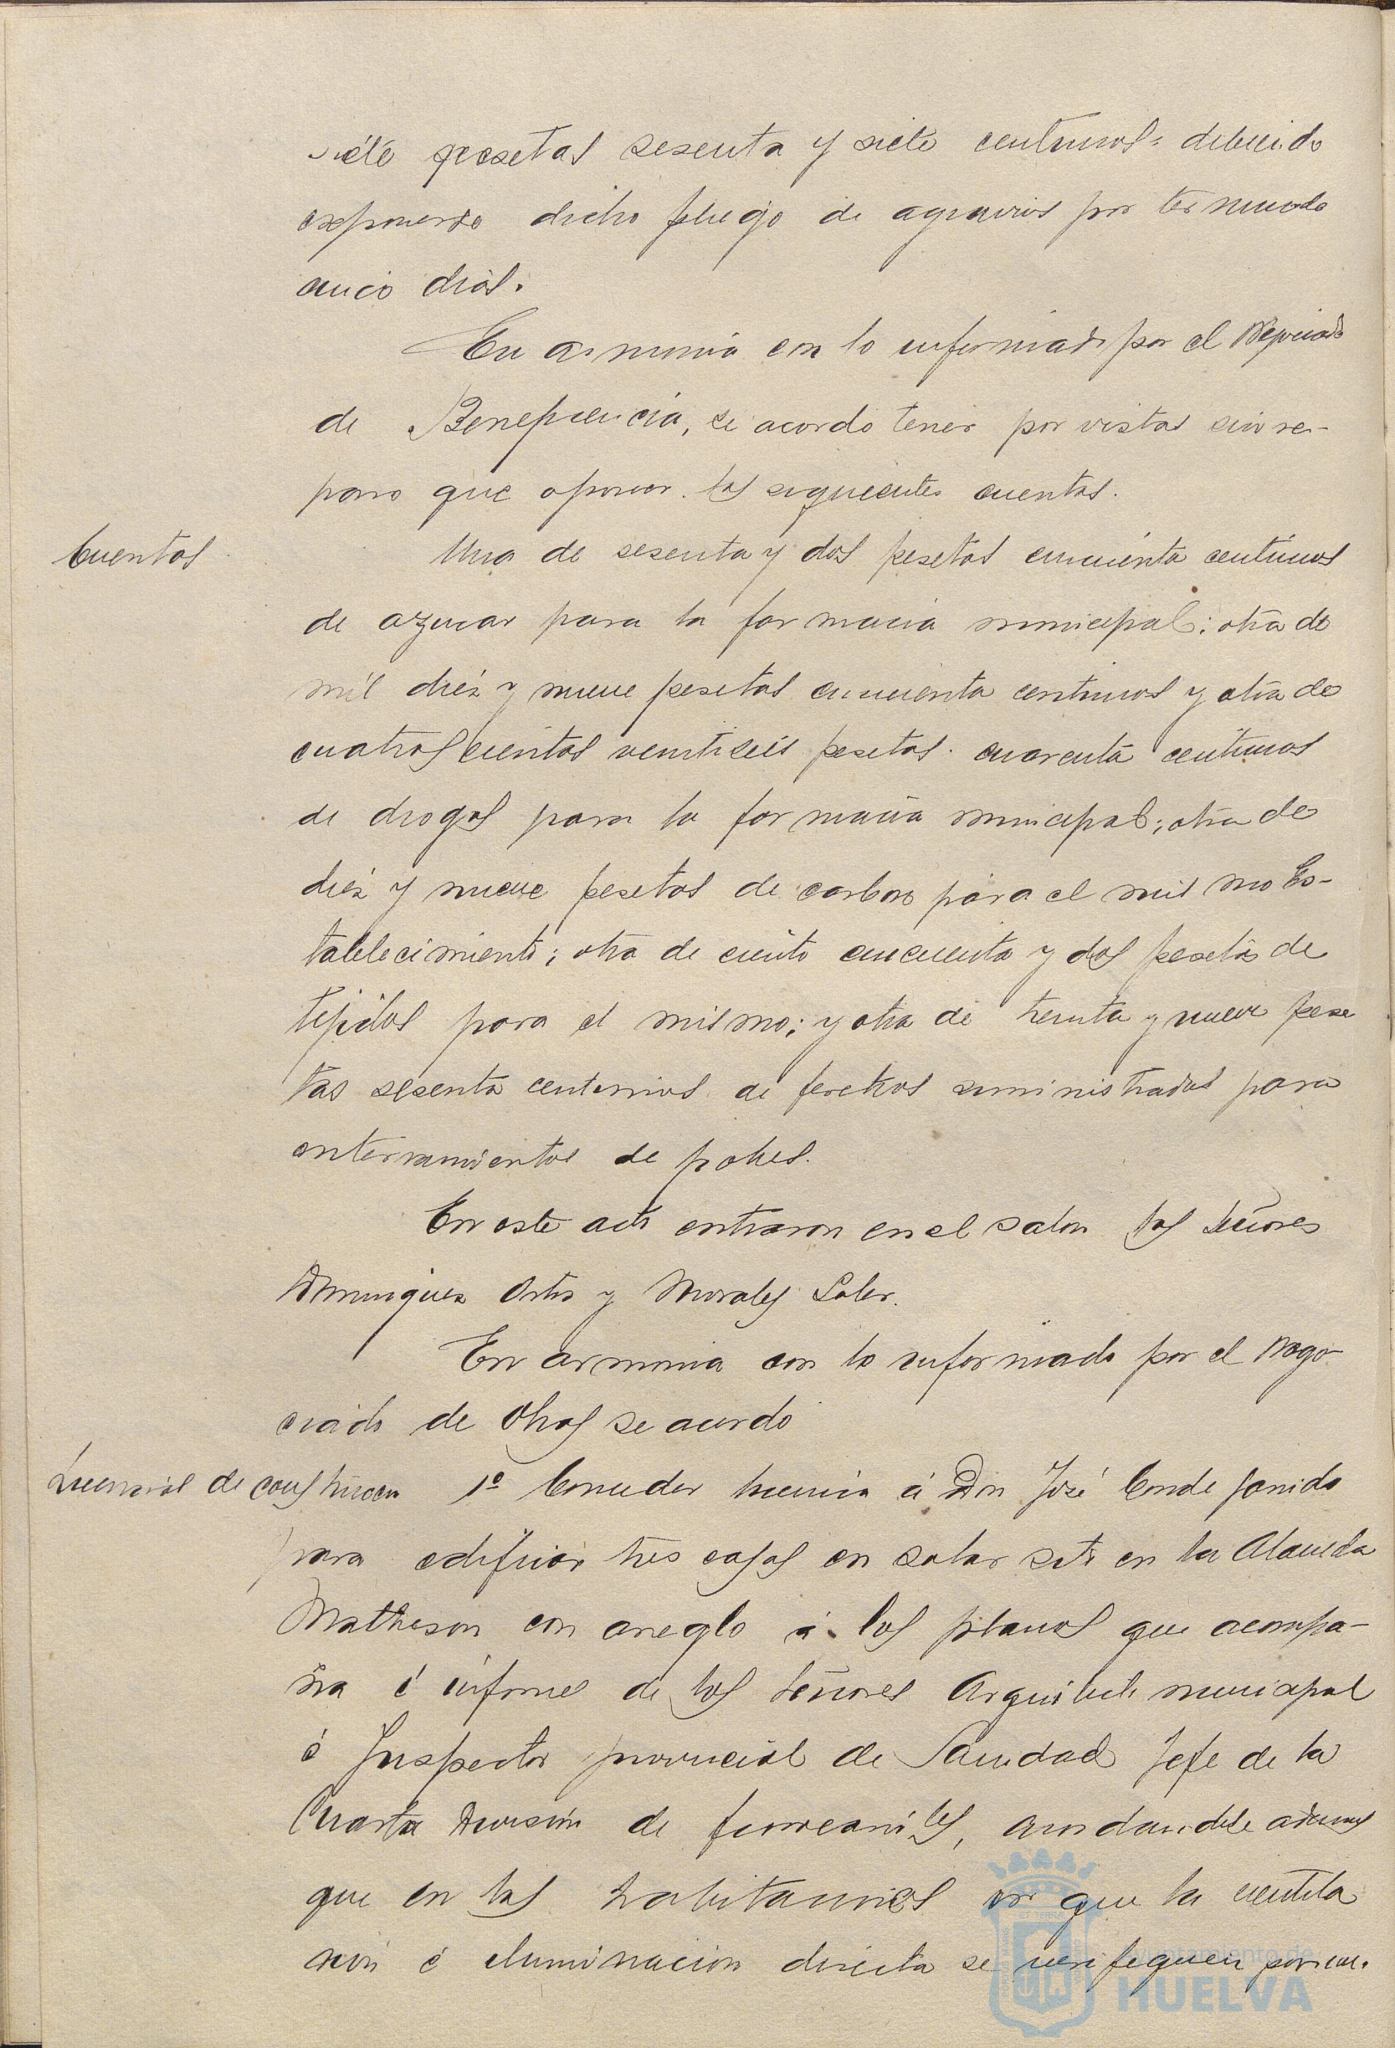 siete pesetas sesenta y siete centimos: debiendo
exponerse dicho pliego de agravios por termino de
cinco dias.
En armonia con lo informado por el Negociado
de Beneficencia, se acordo tener por vistas sin re-
paro que oponer las siguientes cuentas.
Cuentas
Una de sesenta y dos pesetas cincuenta centimos
de azucar para la farmacia municipal; otra de
mil diez y nueve pesetas cincuenta centimos y otra de
cuatroscientas veintiseis pesetas cuarenta centimos
de drogas para la farmacia municipal; otra de
diez y nueve pesetas de carbon para el mismo Es-
tablecimiento; otra de ciento cincuenta y dos pesetas de
tejidos para el mismo; y otra de treinta y nueve pese
tas sesenta centimos de feretros suministrados para
enterramientos de pobres.
En este acto entraron en el salon los Señores
Dominguez Ortiz y Morales Soler.
En armonia con lo informado por el Nego-
ciado de Obras se acordo
Licencias de construccion
1º Conceder licencia á Don José Conde Garrido
para edificar tres casas en solar sito en la Alameda
Matheson con areglo á los planos que acompa-
ña é informes de los Señores Arquitecto municipal
é Inspector provincial de Sanidad Jefe de la
Cuarta Division de ferrocarriles, acordandose ademas
que en las habitaciones en que la ventila
cion é iluminacion directa se verifiquen por
Ayuntamiento de
HUELVA